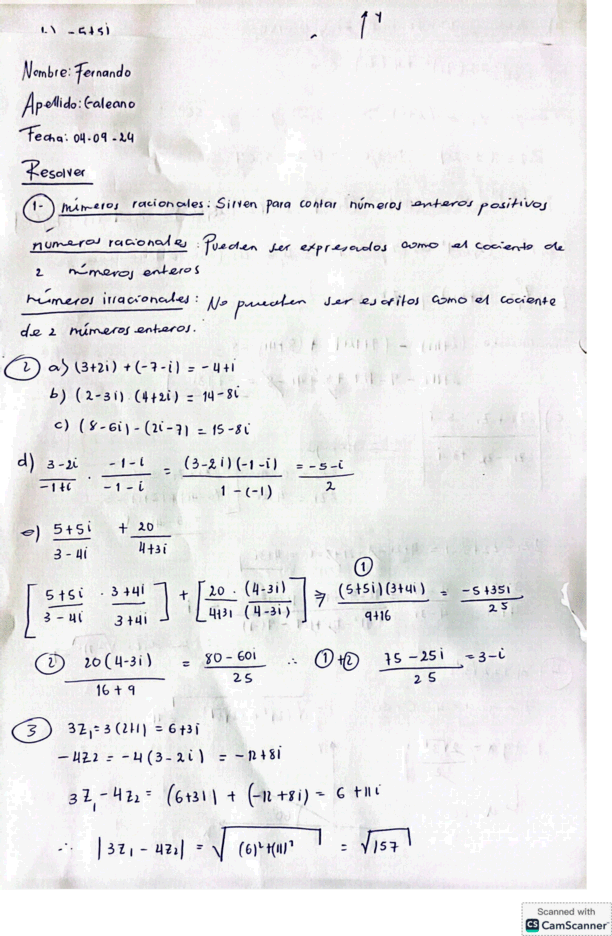 1.) -5+5i
Nombre: Fernando
Apellido: Galeano
Fecha: 04-09-24
Resolver
1- números racionales: Sirven para contar números enteros positivos
números racionales: Pueden ser expresados como el cociente de
2 números enteros
números irracionales: No pueden ser escritos como el cociente
de 2 números enteros.
2 a) (3+2i) + (-7-i) = -4+i
b) (2-3i) (4+2i) = 14-8i
c) (8-6i) - (2i-7) = 15-8i
d) \frac{3-2i}{-1+i} \cdot \frac{-1-i}{-1-i} = \frac{(3-2i)(-1-i)}{1-(-1)} = \frac{-5-i}{2}
e) \frac{5+5i}{3-4i} + \frac{20}{4+3i}
[\frac{5+5i}{3-4i} \cdot \frac{3+4i}{3+4i}] + [\frac{20}{4+3i} \cdot \frac{(4-3i)}{(4-3i)}] ⇒ 1 \frac{(5+5i)(3+4i)}{9+16} = \frac{-5+35i}{25}
2 \frac{20(4-3i)}{16+9} = \frac{80-60i}{25} ∴ 1+2 \frac{75-25i}{25} = 3-i
3 3Z₁ = 3(2+i) = 6+3i
-4Z2 = -4(3-2i) = -12+8i
3Z₁-4Z₂ = (6+3i) + (-12+8i) = 6+11i
∴ |3Z₁ - 4Z₂| = \sqrt{(6)²+(11)²} = \sqrt{157}
Scanned with
CS CamScanner